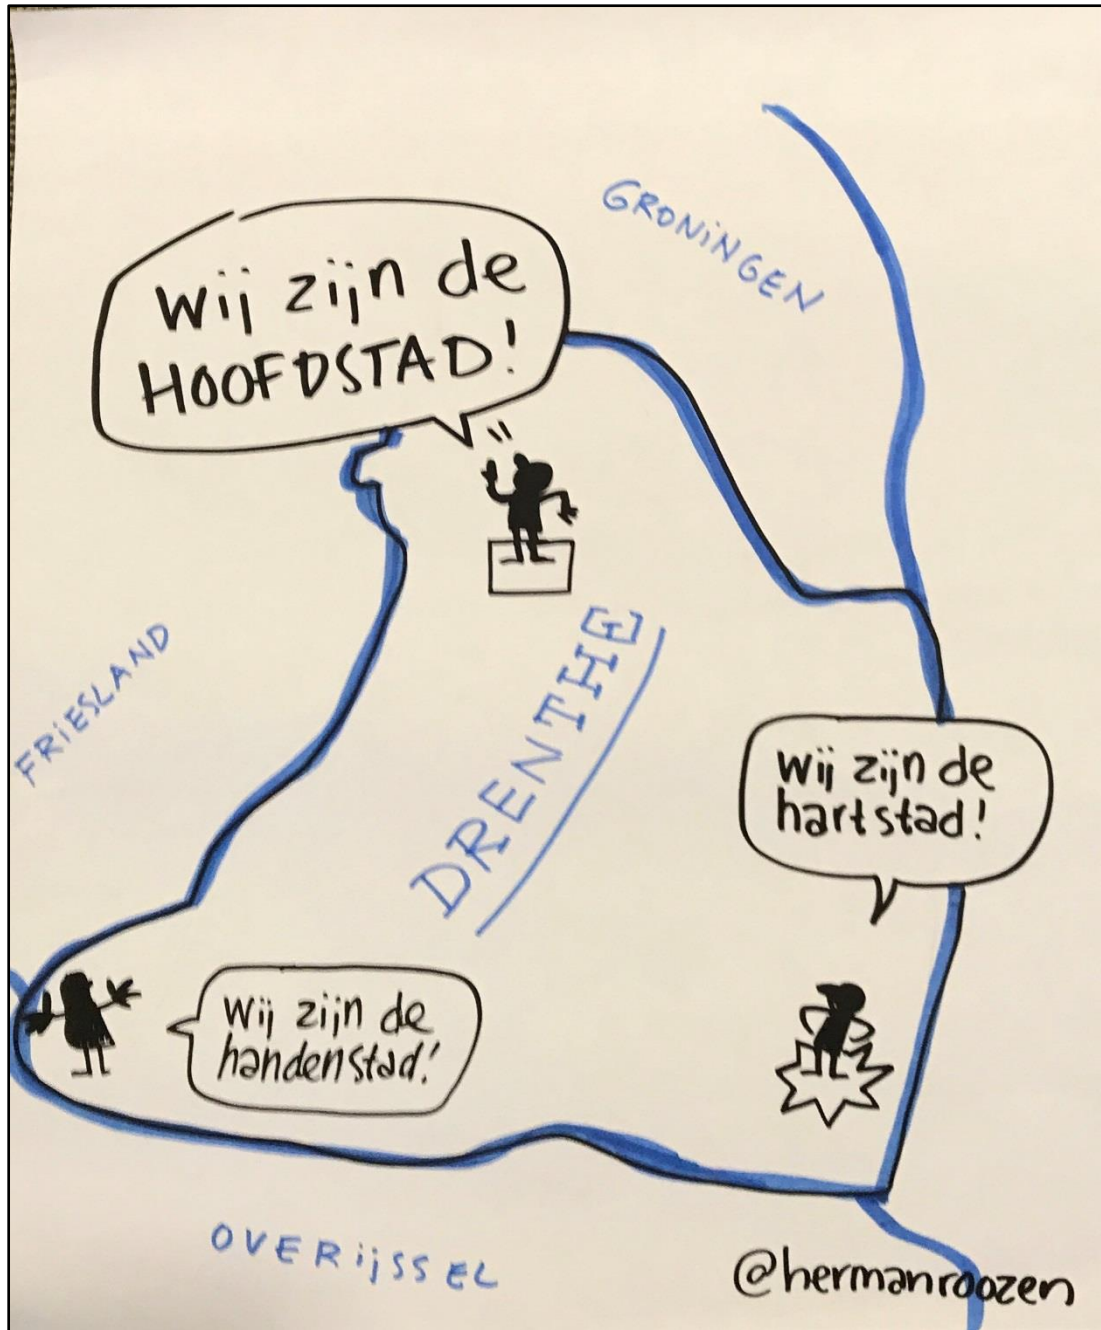 GRONiNGEN
Wij zijn de
HOOFDSTAD!
FRiESLAND
DRENTHE
Wij zijn de
hartstad!
Wij zijn de
handenstad!
OVERijSSEL
@hermanroozen